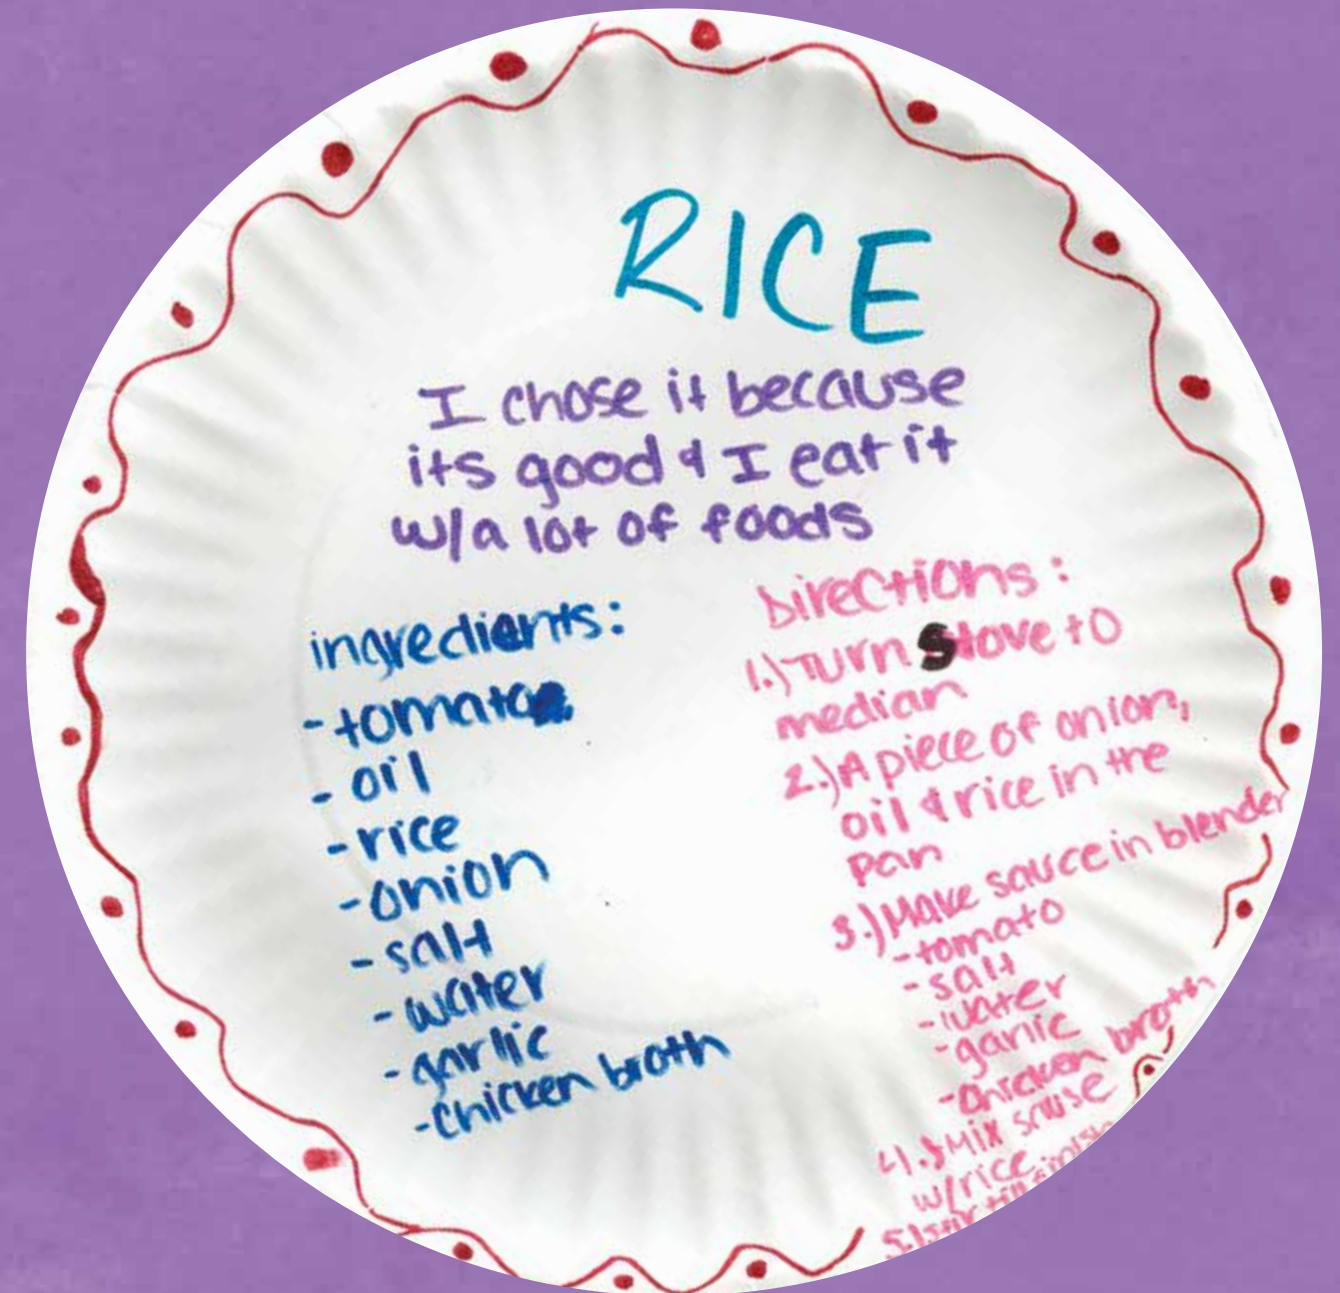 RICE
I chose it because
its good & I eat it
w/a lot of foods
ingredients:
- tomato
- oil
- rice
- onion
- salt
- water
- garlic
- chicken broth
Directions:
1.) Turn stove to
median
2.) A piece of onion,
oil & rice in the
pan
3.) Make sauce in blender
- tomato
- salt
- water
- garlic
- chicken broth
4.) Mix sause
w/rice
5.) stir till finish